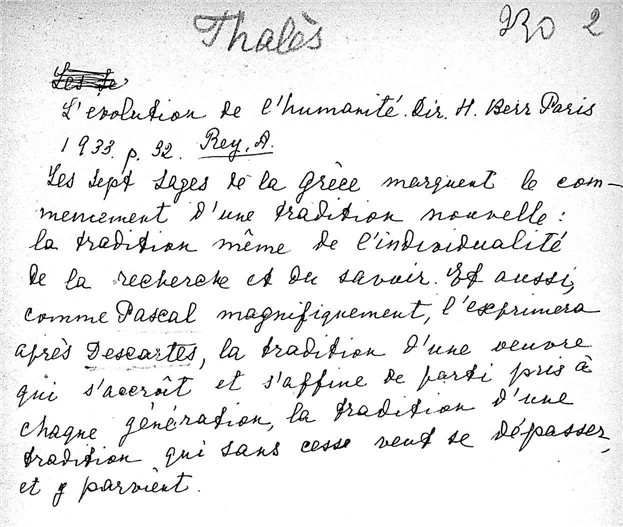 Thalès
230 2
L'evolution de l'humanité. Dir. H. Berr Paris
1933. p. 32. Rey, A.
Les sept sages de la Grèce marquent le com-
mencement d'une tradition nouvelle :
la tradition même de l'individualité
de la recherche et du savoir. Et aussi,
comme Pascal magnifiquement, l'exprimera
après Descartes, la tradition d'une oeuvre
qui s'accroît et s'affine de parti pris à
chaque génération, la tradition d'une
tradition qui sans cesse veut se dépasser,
et y parvient.